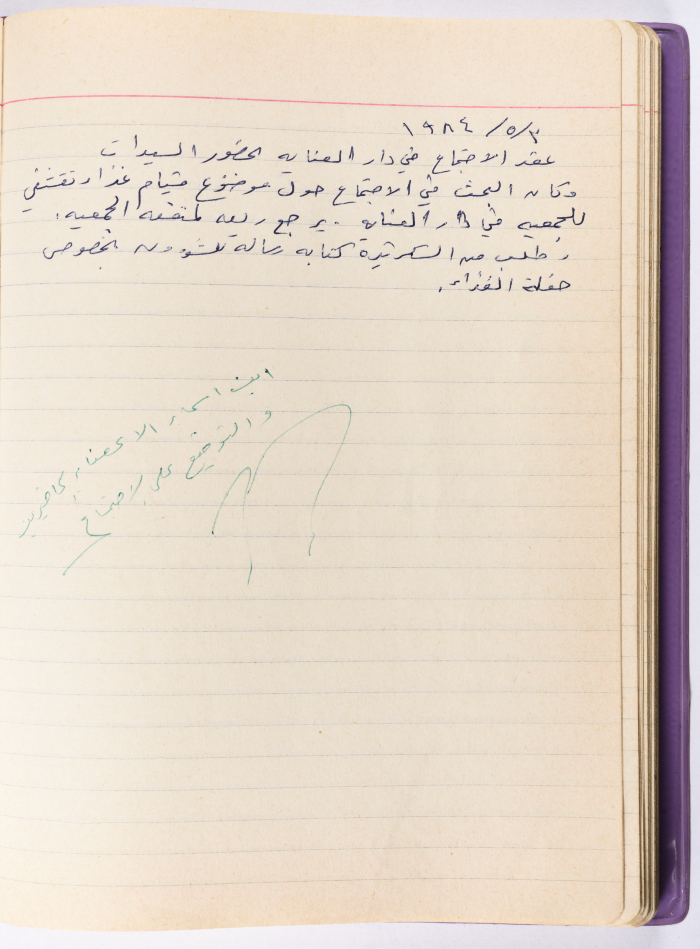 ١٩٨٤/٥/٢
عقد الاجتماع في دار العنايه بحضور السيدات
وكان البحث في الاجتماع حول موضوع قيام غذاء تقشفي
للجمعيه في دار العنايه . يرجع ريعه لمنفعه الجمعيه .
وطلب من السكرتيرة كتابه رساله للشؤون بخصوص
حفلة الغذاء .
اين اسماء الاعضاء الحاضرين
والتوقيع على الاجتماع